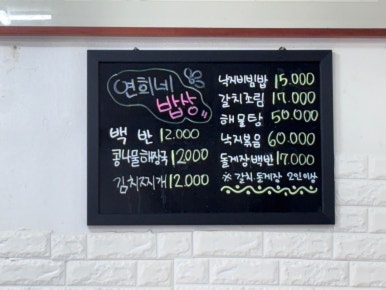 연희네
밥상
백반 12.000
콩나물해장국 12.000
김치찌개 12.000
낙지비빔밥 15.000
갈치조림 17.000
해물탕 50.000
낙지볶음 60.000
돌게장백반 17.000
※ 갈치. 돌게장 2인이상